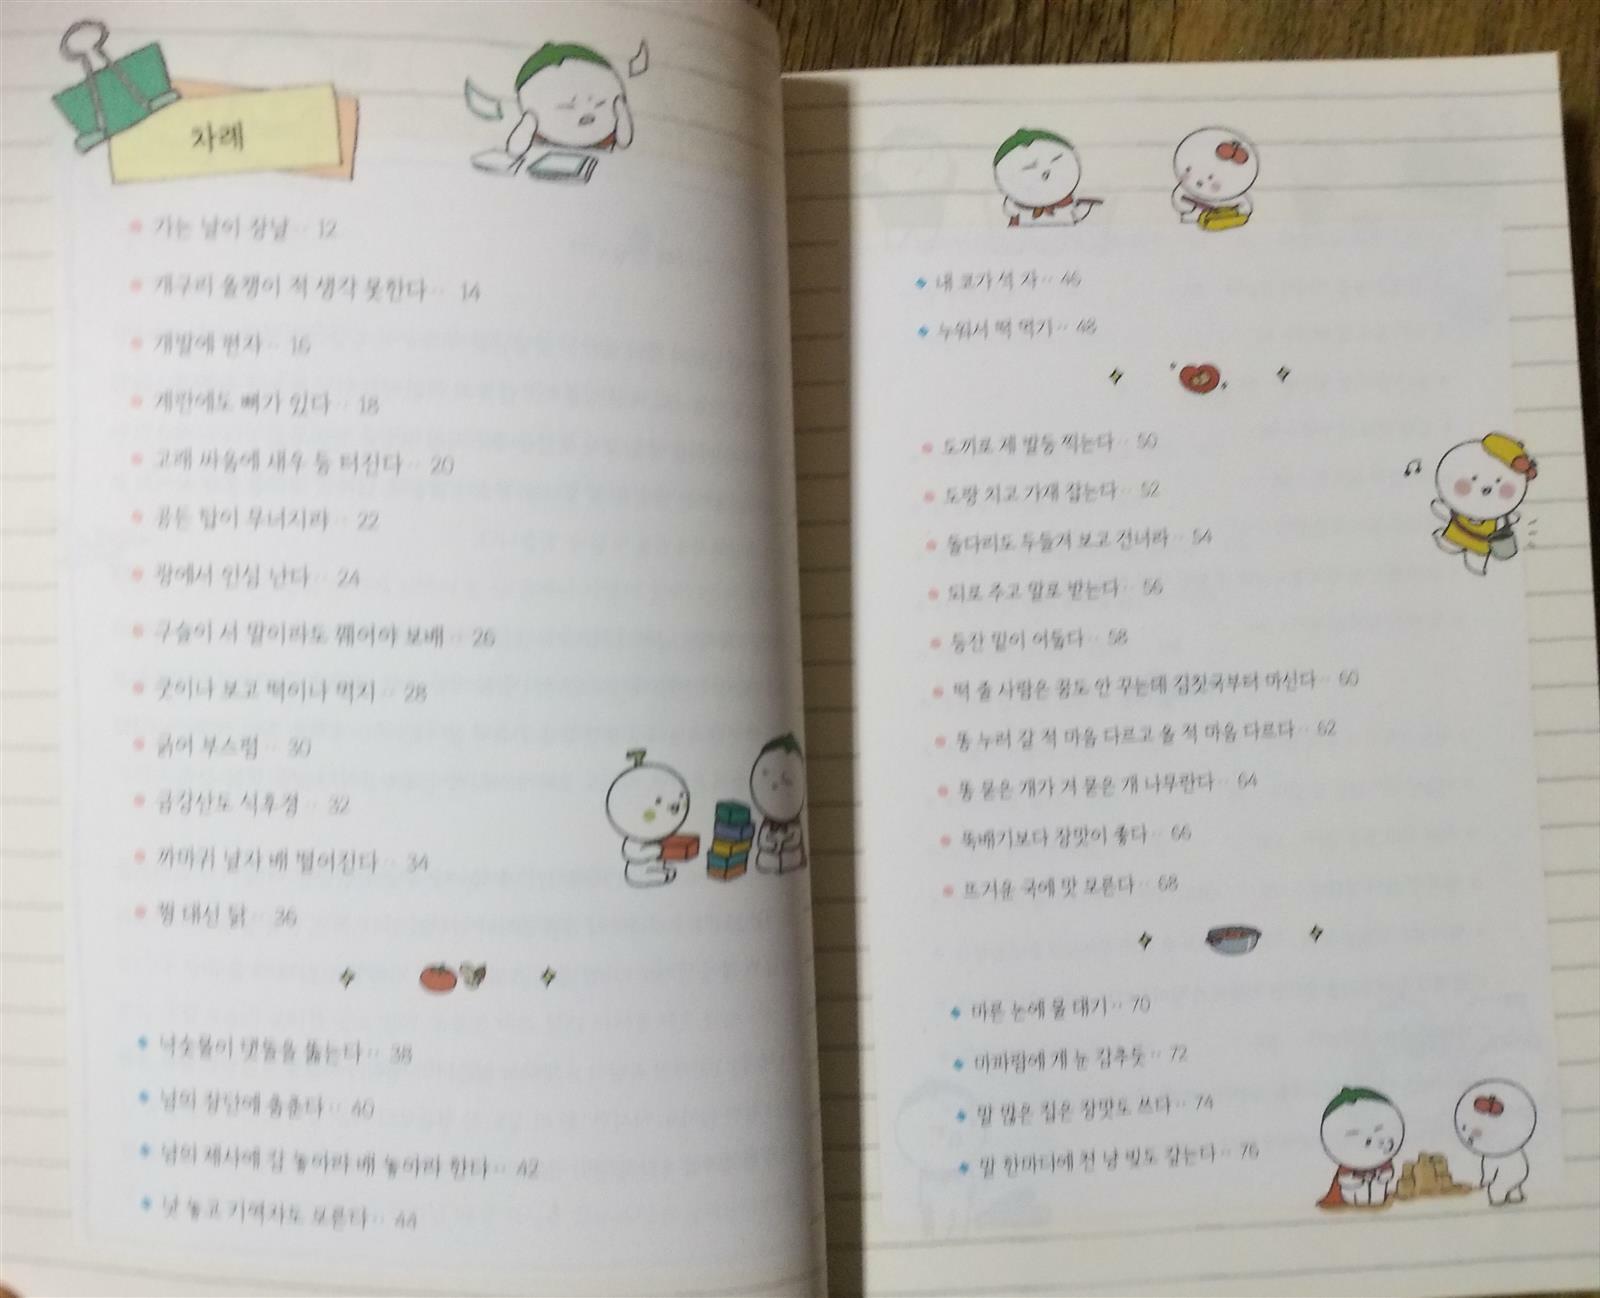 차례
가는 날이 장날 ·· 12
개구리 올챙이 적 생각 못한다 ·· 14
개발에 편자 ·· 16
계란에도 뼈가 있다 ·· 18
고래 싸움에 새우 등 터진다 ·· 20
공든 탑이 무너지랴 ·· 22
광에서 인심 난다 ·· 24
구슬이 서 말이라도 꿰어야 보배 ·· 26
굿이나 보고 떡이나 먹지 ·· 28
긁어 부스럼 ·· 30
금강산도 식후경 ·· 32
까마귀 날자 배 떨어진다 ·· 34
꿩 대신 닭 ·· 36
낙숫물이 댓돌을 뚫는다 ·· 38
남의 장단에 춤춘다 ·· 40
남의 제사에 감 놓아라 배 놓아라 한다 ·· 42
낫 놓고 기역자도 모른다 ·· 44
내 코가 석 자 ·· 46
누워서 떡 먹기 ·· 48
도끼로 제 발등 찍는다 ·· 50
도랑 치고 가재 잡는다 ·· 52
돌다리도 두들겨 보고 건너라 ·· 54
되로 주고 말로 받는다 ·· 56
등잔 밑이 어둡다 ·· 58
떡 줄 사람은 꿈도 안 꾸는데 김칫국부터 마신다 ·· 60
똥 누러 갈 적 마음 다르고 올 적 마음 다르다 ·· 62
똥 묻은 개가 겨 묻은 개 나무란다 ·· 64
뚝배기보다 장맛이 좋다 ·· 66
뜨거운 국에 맛 모른다 ·· 68
마른 논에 물 대기 ·· 70
마파람에 게 눈 감추듯 ·· 72
말 많은 집은 장맛도 쓰다 ·· 74
말 한마디에 천 냥 빚도 갚는다 ·· 76